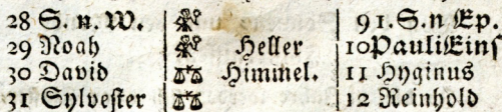 28 S. n. W. 9 1. S. n Ep.
29 Noah Heller 10 Pauli Eins
30 David Himmel. 11 Hyginus
31 Sylvester 12 Reinhold